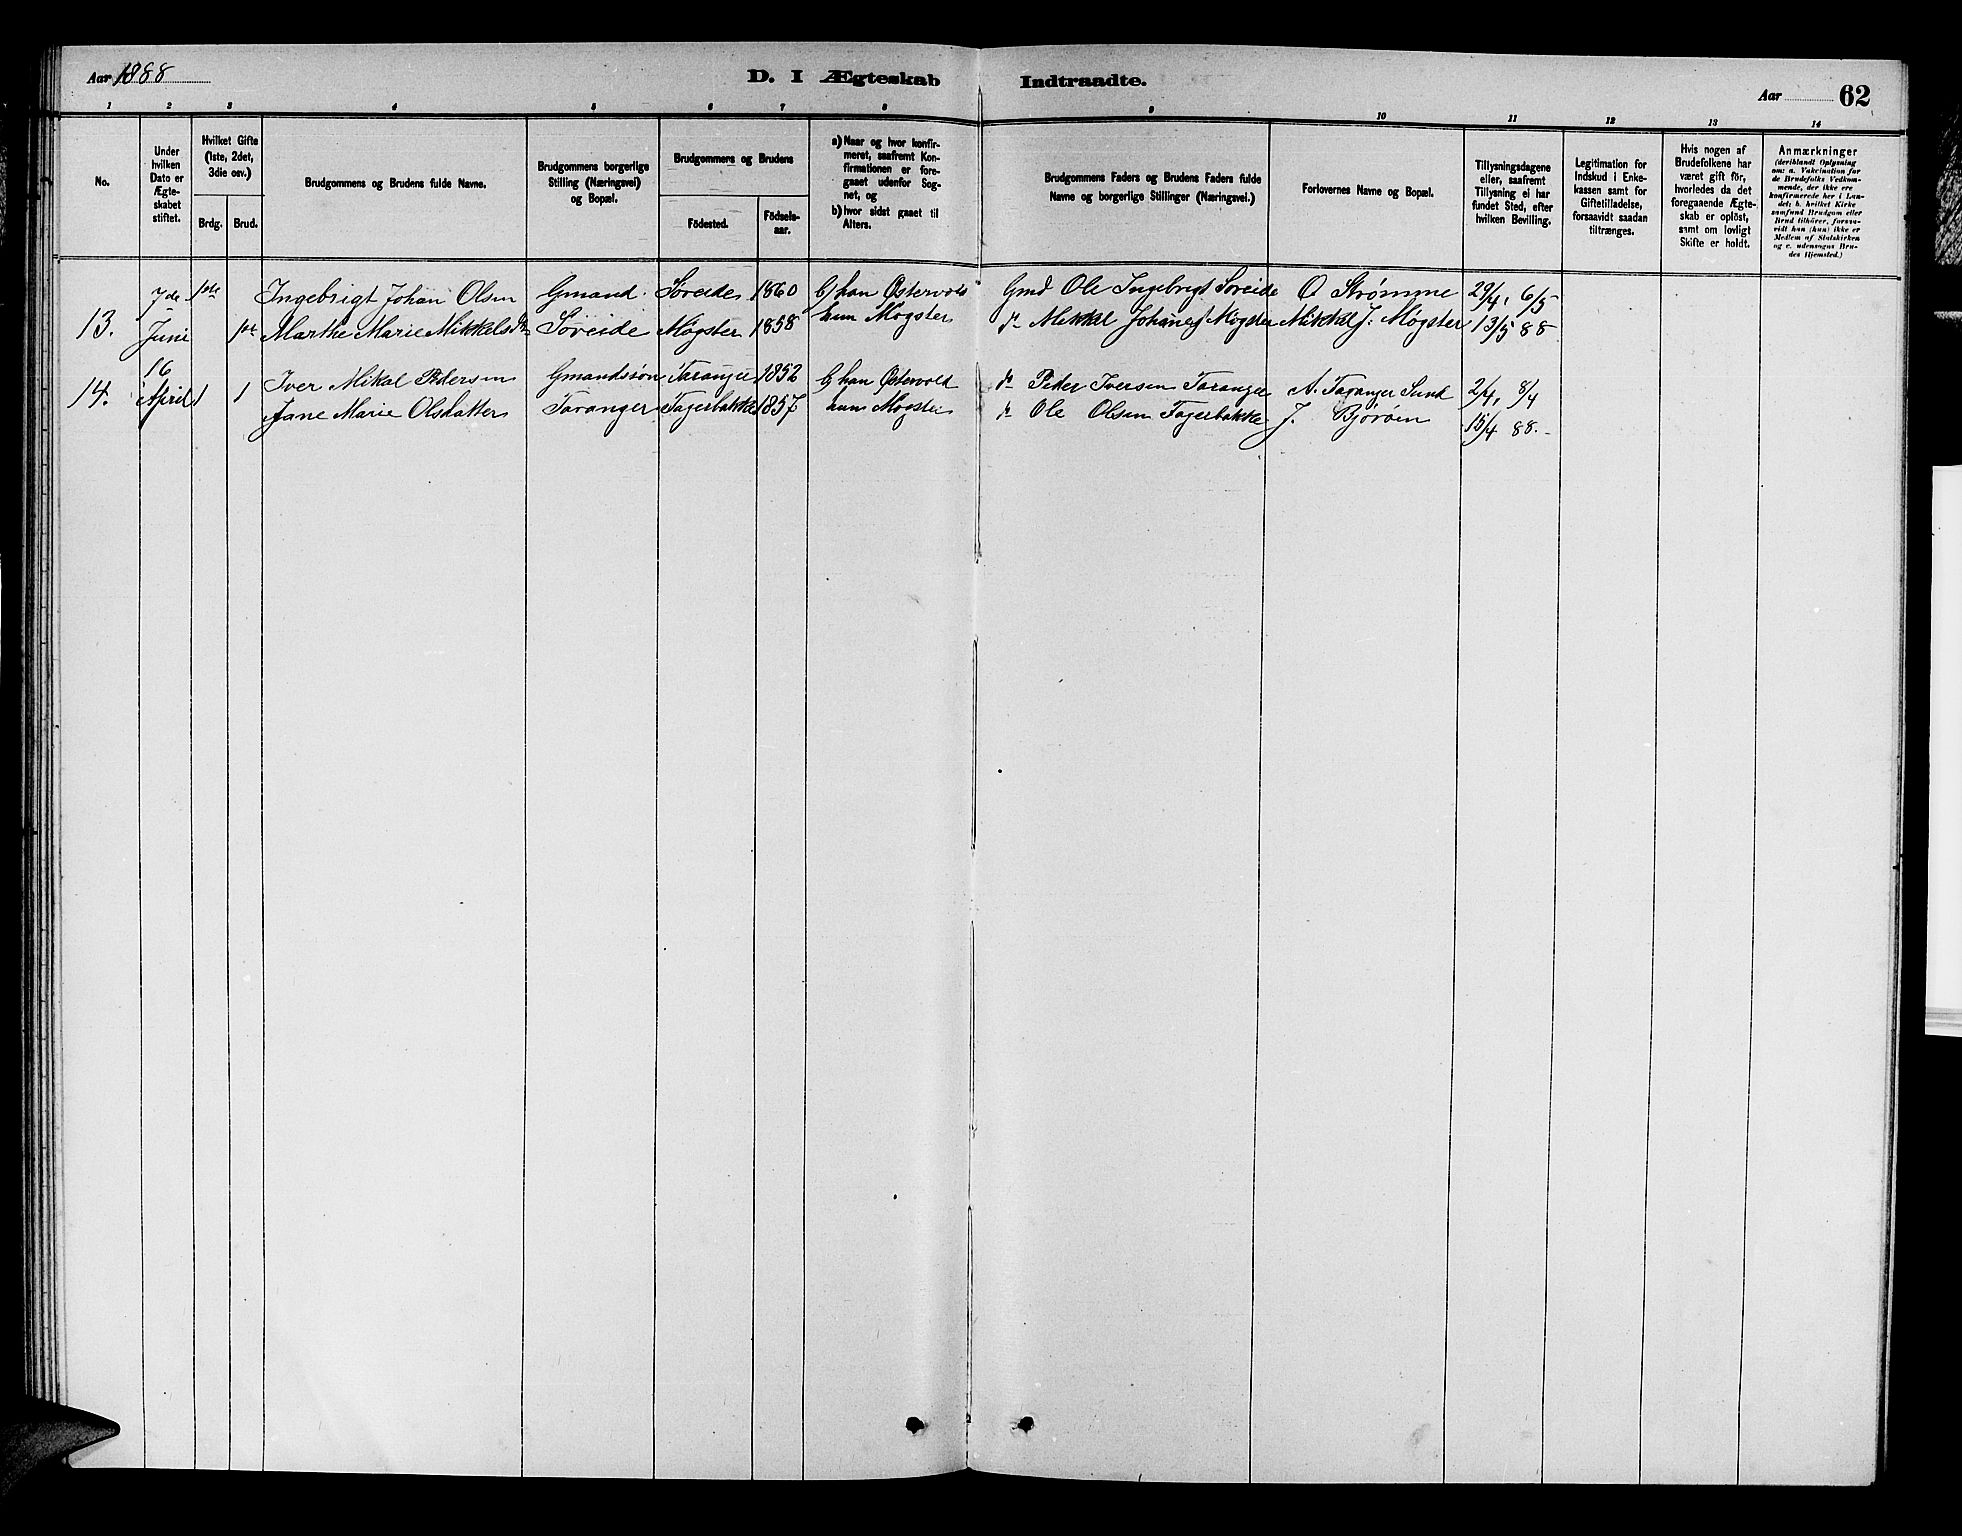 Aar 1888
D. I Ægteskab Indtraadte.
Aar 62
1 2 3 4 5 6 7 8 9 10 11 12 13 14
No.
Under
hvilken
Dato er
Ægte-
skabet
stiftet.
Hvilket Gifte
(1ste, 2det,
3die osv.)
Brdg. Brud.
Brudgommens og Brudens fulde Navne.
Brudgommens borgerlige
Stilling (Næringsvei)
og Bopæl.
Brudgommens og Brudens
Födested.
Födsels-
aar.
a) Naar og hvor konfir-
meret, saafremt Kon-
firmationen er fore-
gaaet udenfor Sog-
net, og
b) hvor sidst gaaet til
Alters.
Brudgommens Faders og Brudens Faders fulde
Navne og borgerlige Stillinger (Næringsvei.)
Forlovernes Navne og Bopæl.
Tillysningsdagene
eller, saafremt
Tillysning ei har
fundet Sted, efter
hvilken Bevilling.
Legitimation for
Indskud i Enke-
kassen samt for
Giftetilladelse,
forsaavidt saadan
tiltrænges.
Hvis nogen af
Brudefolkene har
været gift för,
hvorledes da det
foregaaende Ægte-
skab er oplöst,
samt om lovligt
Skifte er holdt.
Anmærkninger
(deriblandt Oplysning
om: a. Vakcination for
de Brudefolks Vedkom-
mende, der ikke ere
konfirmerede her i Lan-
det; b. hvilket Kirke
samfund Brudgom eller
Brud tilhörer, forsaa-
vidt han (hun) ikke er
Medlem af Statskirken
og c. udensogns Bru-
des Hjemsted.)
7de 1ste Ingebrigt Johan Olsen Gmand. Søreide 1860 b) han Østervold Gmd Ole Ingebrigt Søreide O Strømme 29/4, 6/5
13. Juni 1ste Marthe Marie Mikkelsdtr Søreide Møgster 1858 hun Møgster do Mikkel Johannes Møgster Mikkel J. Møgster 13/5 88
16
14. April 1 1 Iver Mikal Pedersen Gmandssøn Taranger 1852 b) han Østervold do Peder Iversen Taranger A. Taranger Sund 2/4, 8/4
Jane Marie Olsdatter Taranger Fagerbakke 1857 hun Møgster do Ole Olsen Fagerbakke J. Bjørøen 15/4 88.